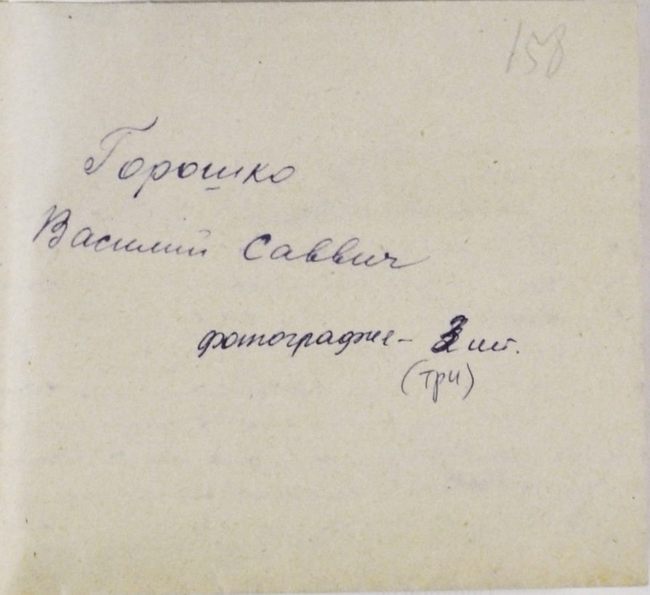 158
Горошко
Василий Саввич
фотографие - 3 шт.
(три)